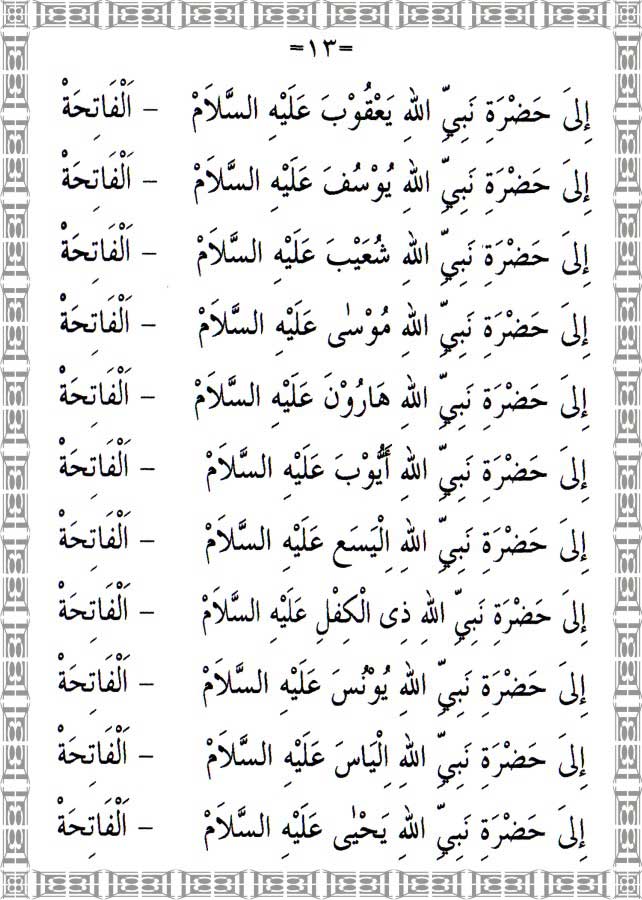 =١٣=
إِلىَ حَضْرَةِ نَبِيِّ اللهِ يَعْقُوْبَ عَلَيْهِ السَّلَامْ – اَلْفَاتِحَةْ
إِلىَ حَضْرَةِ نَبِيِّ اللهِ يُوْسُفَ عَلَيْهِ السَّلَامْ – اَلْفَاتِحَةْ
إِلىَ حَضْرَةِ نَبِيِّ اللهِ شُعَيْبَ عَلَيْهِ السَّلَامْ – اَلْفَاتِحَةْ
إِلىَ حَضْرَةِ نَبِيِّ اللهِ مُوْسٰى عَلَيْهِ السَّلَامْ – اَلْفَاتِحَةْ
إِلىَ حَضْرَةِ نَبِيِّ اللهِ هَارُوْنَ عَلَيْهِ السَّلَامْ – اَلْفَاتِحَةْ
إِلىَ حَضْرَةِ نَبِيِّ اللهِ أَيُّوْبَ عَلَيْهِ السَّلَامْ – اَلْفَاتِحَةْ
إِلىَ حَضْرَةِ نَبِيِّ اللهِ اِلْيَسَع عَلَيْهِ السَّلَامْ – اَلْفَاتِحَةْ
إِلىَ حَضْرَةِ نَبِيِّ اللهِ ذِى الْكِفْلِ عَلَيْهِ السَّلَامْ – اَلْفَاتِحَةْ
إِلىَ حَضْرَةِ نَبِيِّ اللهِ يُوْنُسَ عَلَيْهِ السَّلَامْ – اَلْفَاتِحَةْ
إِلىَ حَضْرَةِ نَبِيِّ اللهِ اِلْيَاسَ عَلَيْهِ السَّلَامْ – اَلْفَاتِحَةْ
إِلىَ حَضْرَةِ نَبِيِّ اللهِ يَحْيٰى عَلَيْهِ السَّلَامْ – اَلْفَاتِحَةْ